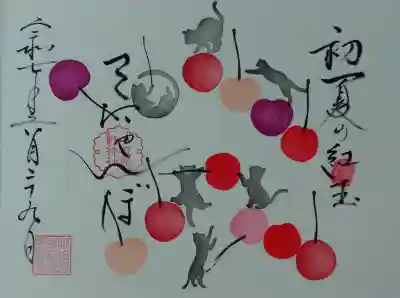 初夏の紅玉
さくらんぼ
令和七年六月二十九日